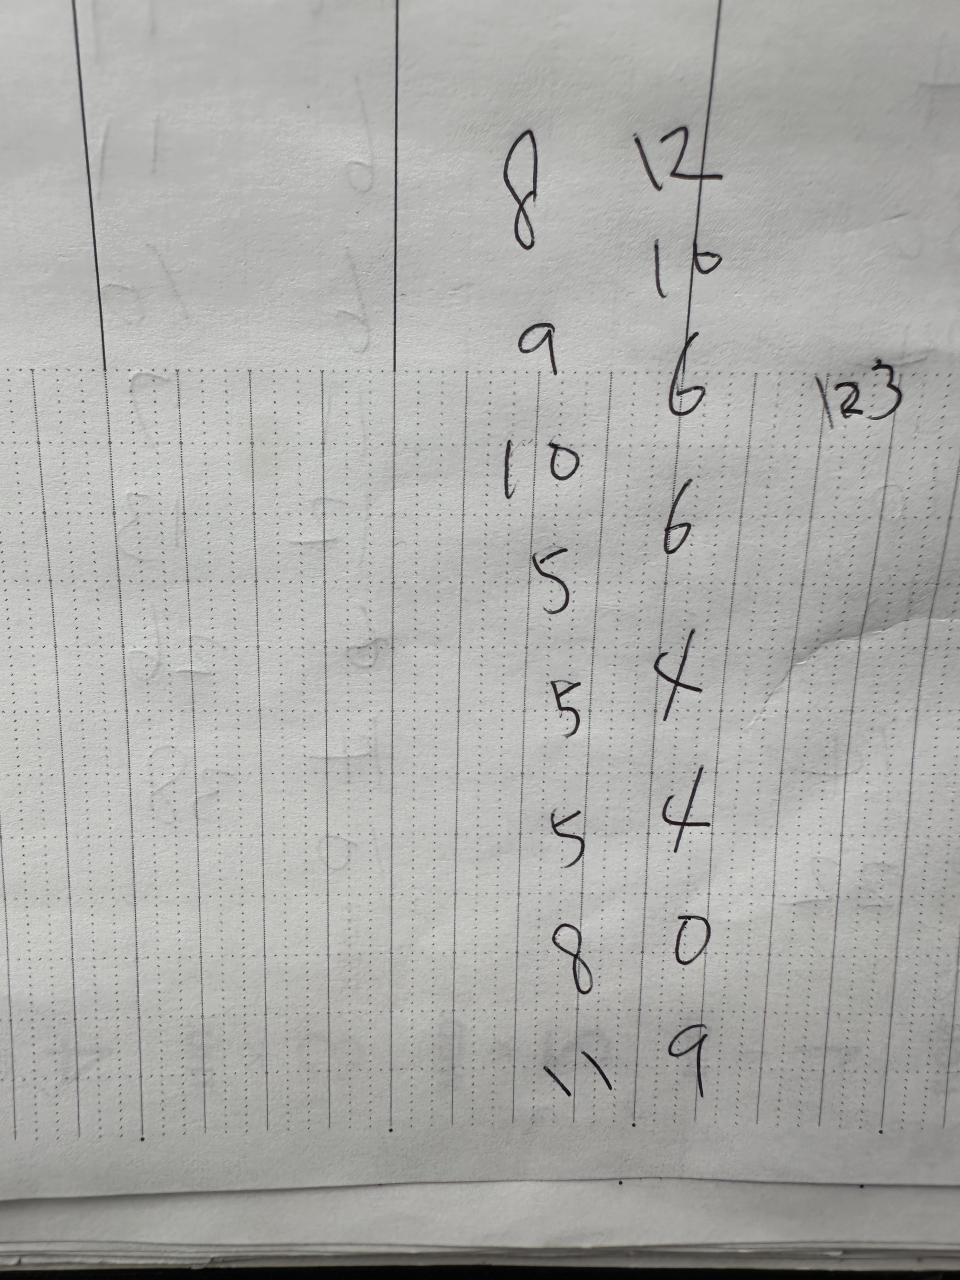 8 12
9 10
10 6 123
5 6
5 4
5 4
8 0
11 9